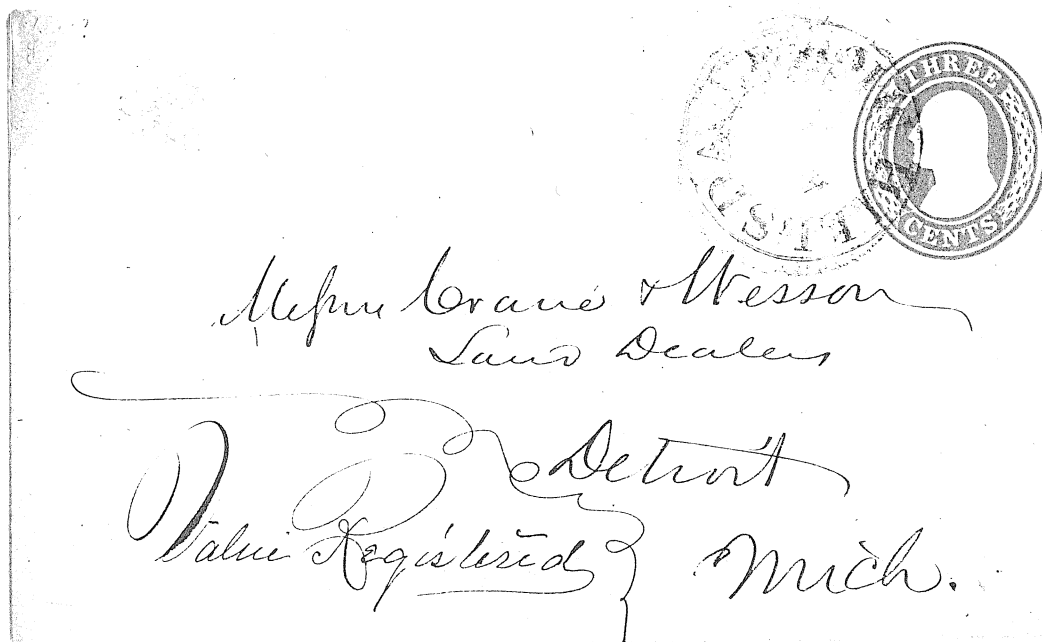 THREE
CENTS
Messrs Crane & Wesson
Land Dealers
Detroit
Value Registered
Mich.